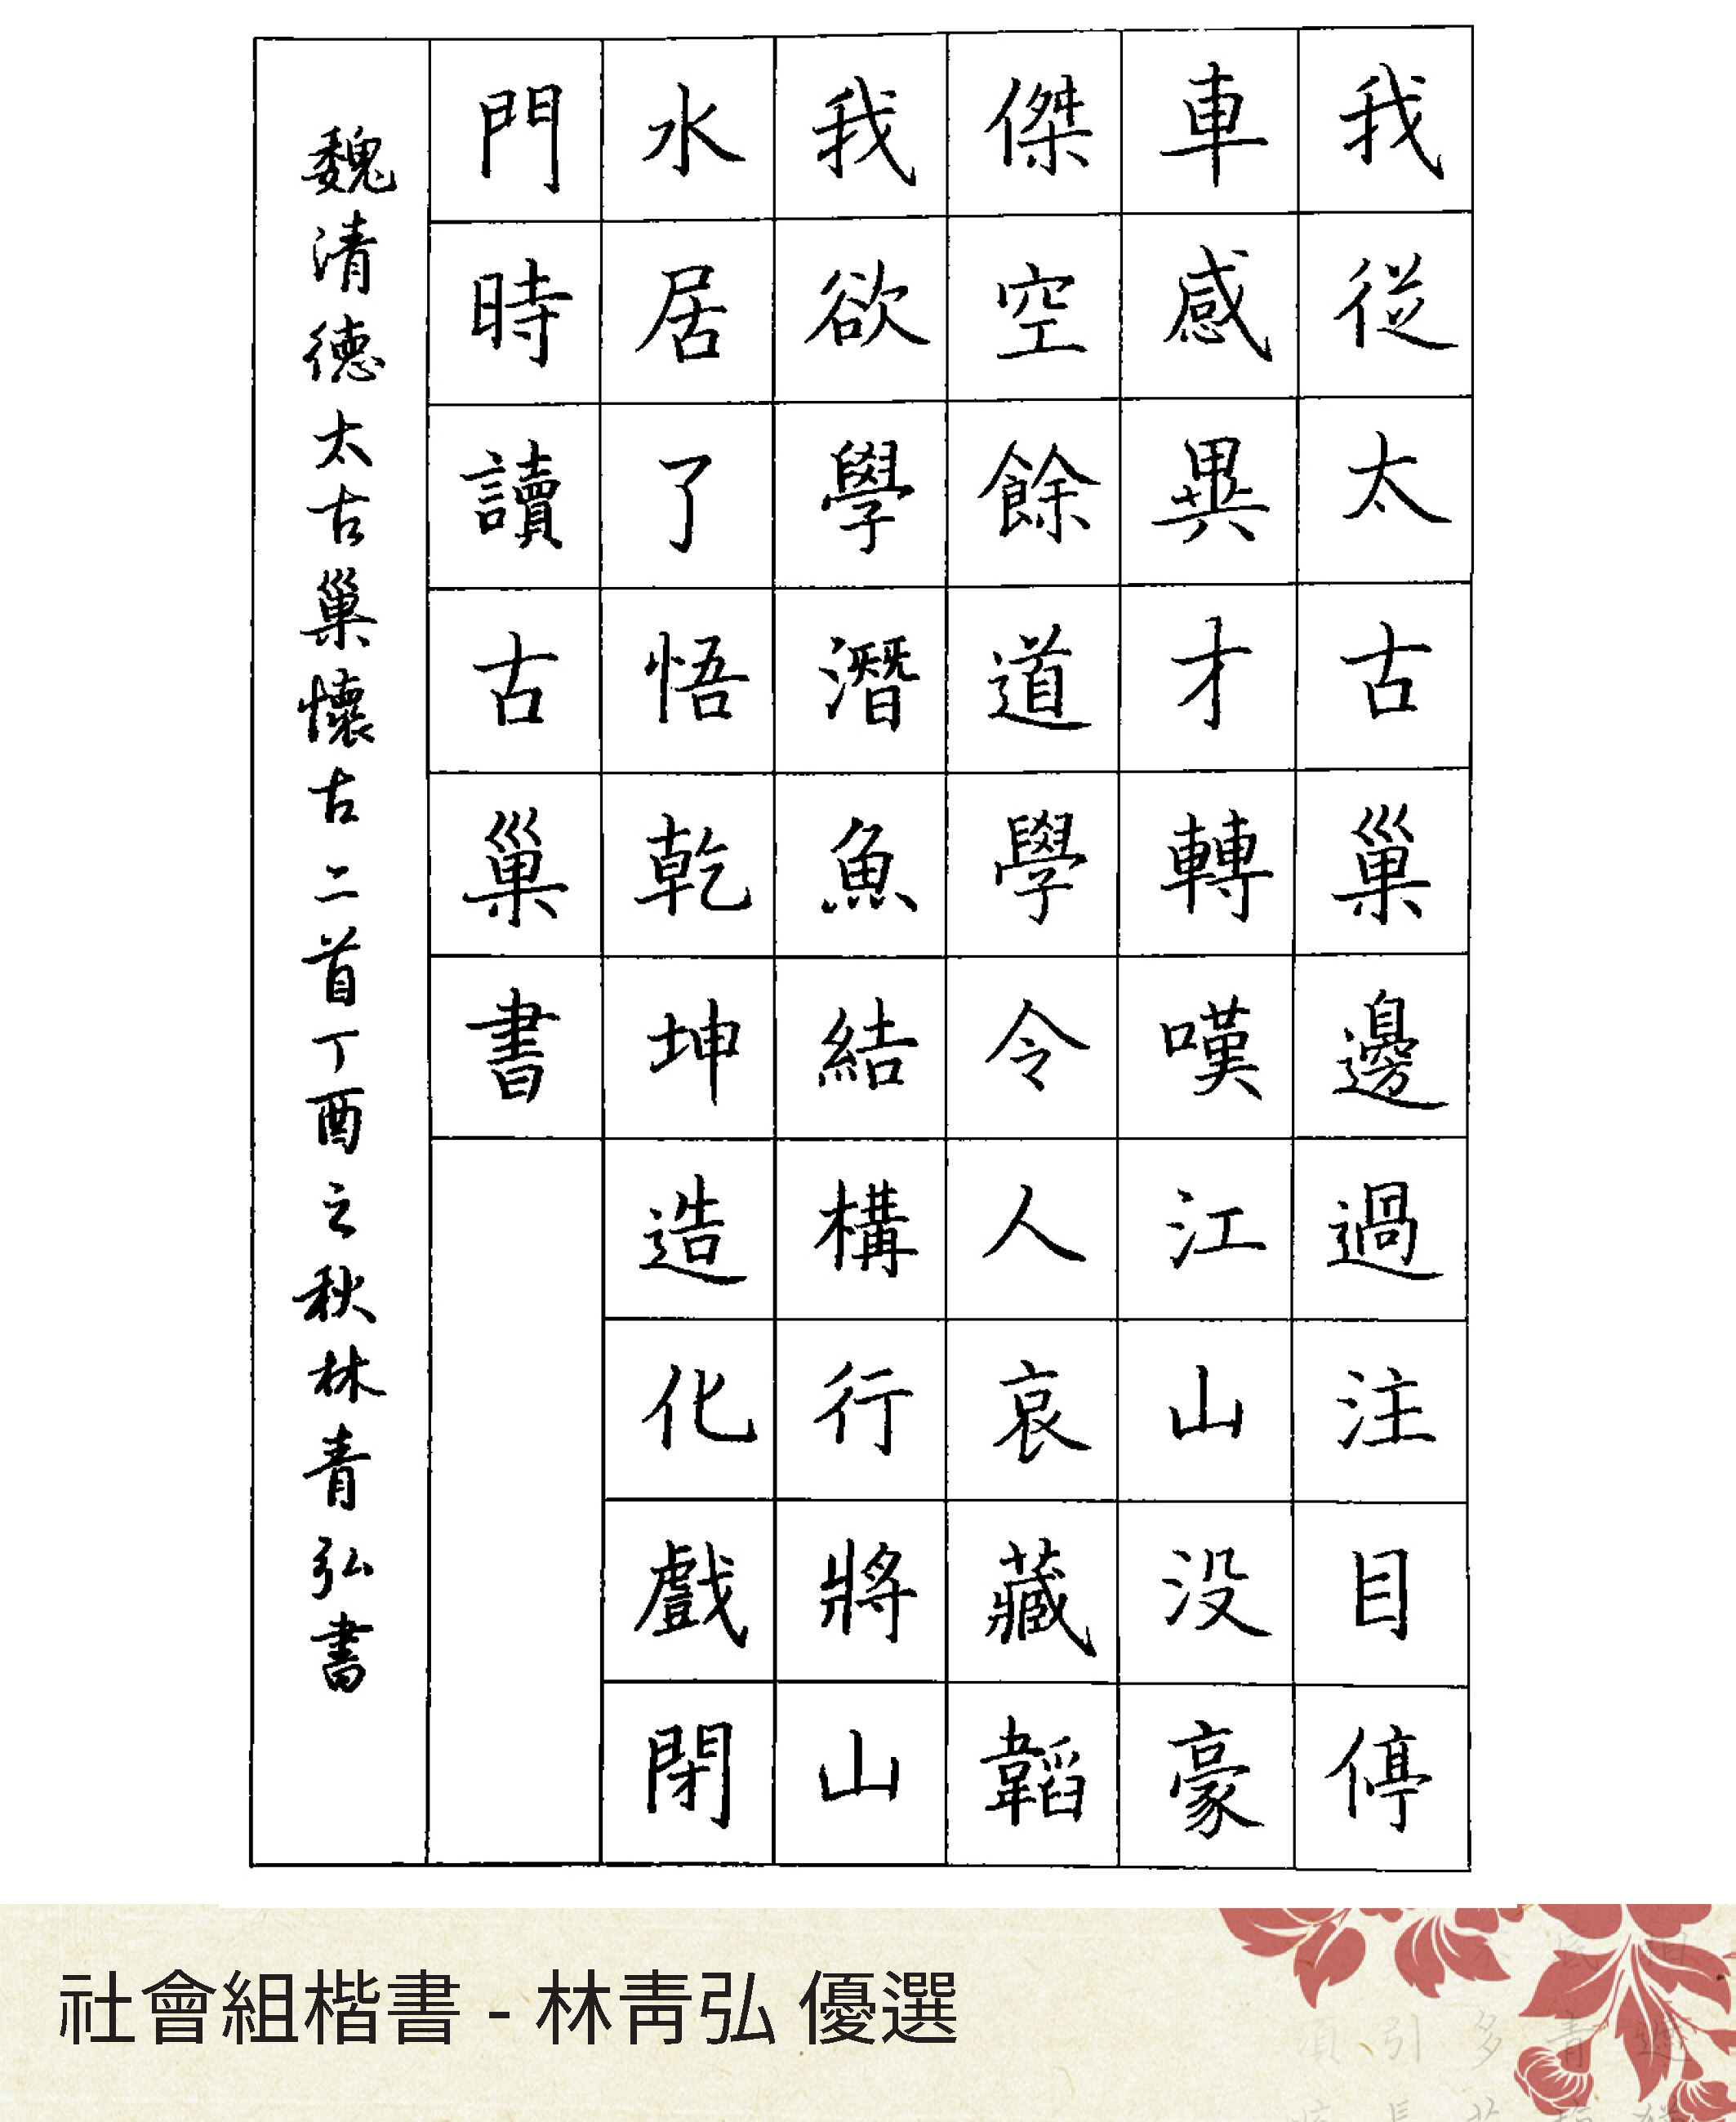 我從太古巢邊過注目停
車感異才轉嘆江山沒豪
傑空餘道學令人哀藏韜
我欲學潛魚結構行將山
水居了悟乾坤造化戲閉
門時讀古巢書
魏清德太古巢懷古二首丁酉之秋林青弘書
社會組楷書 - 林青弘 優選